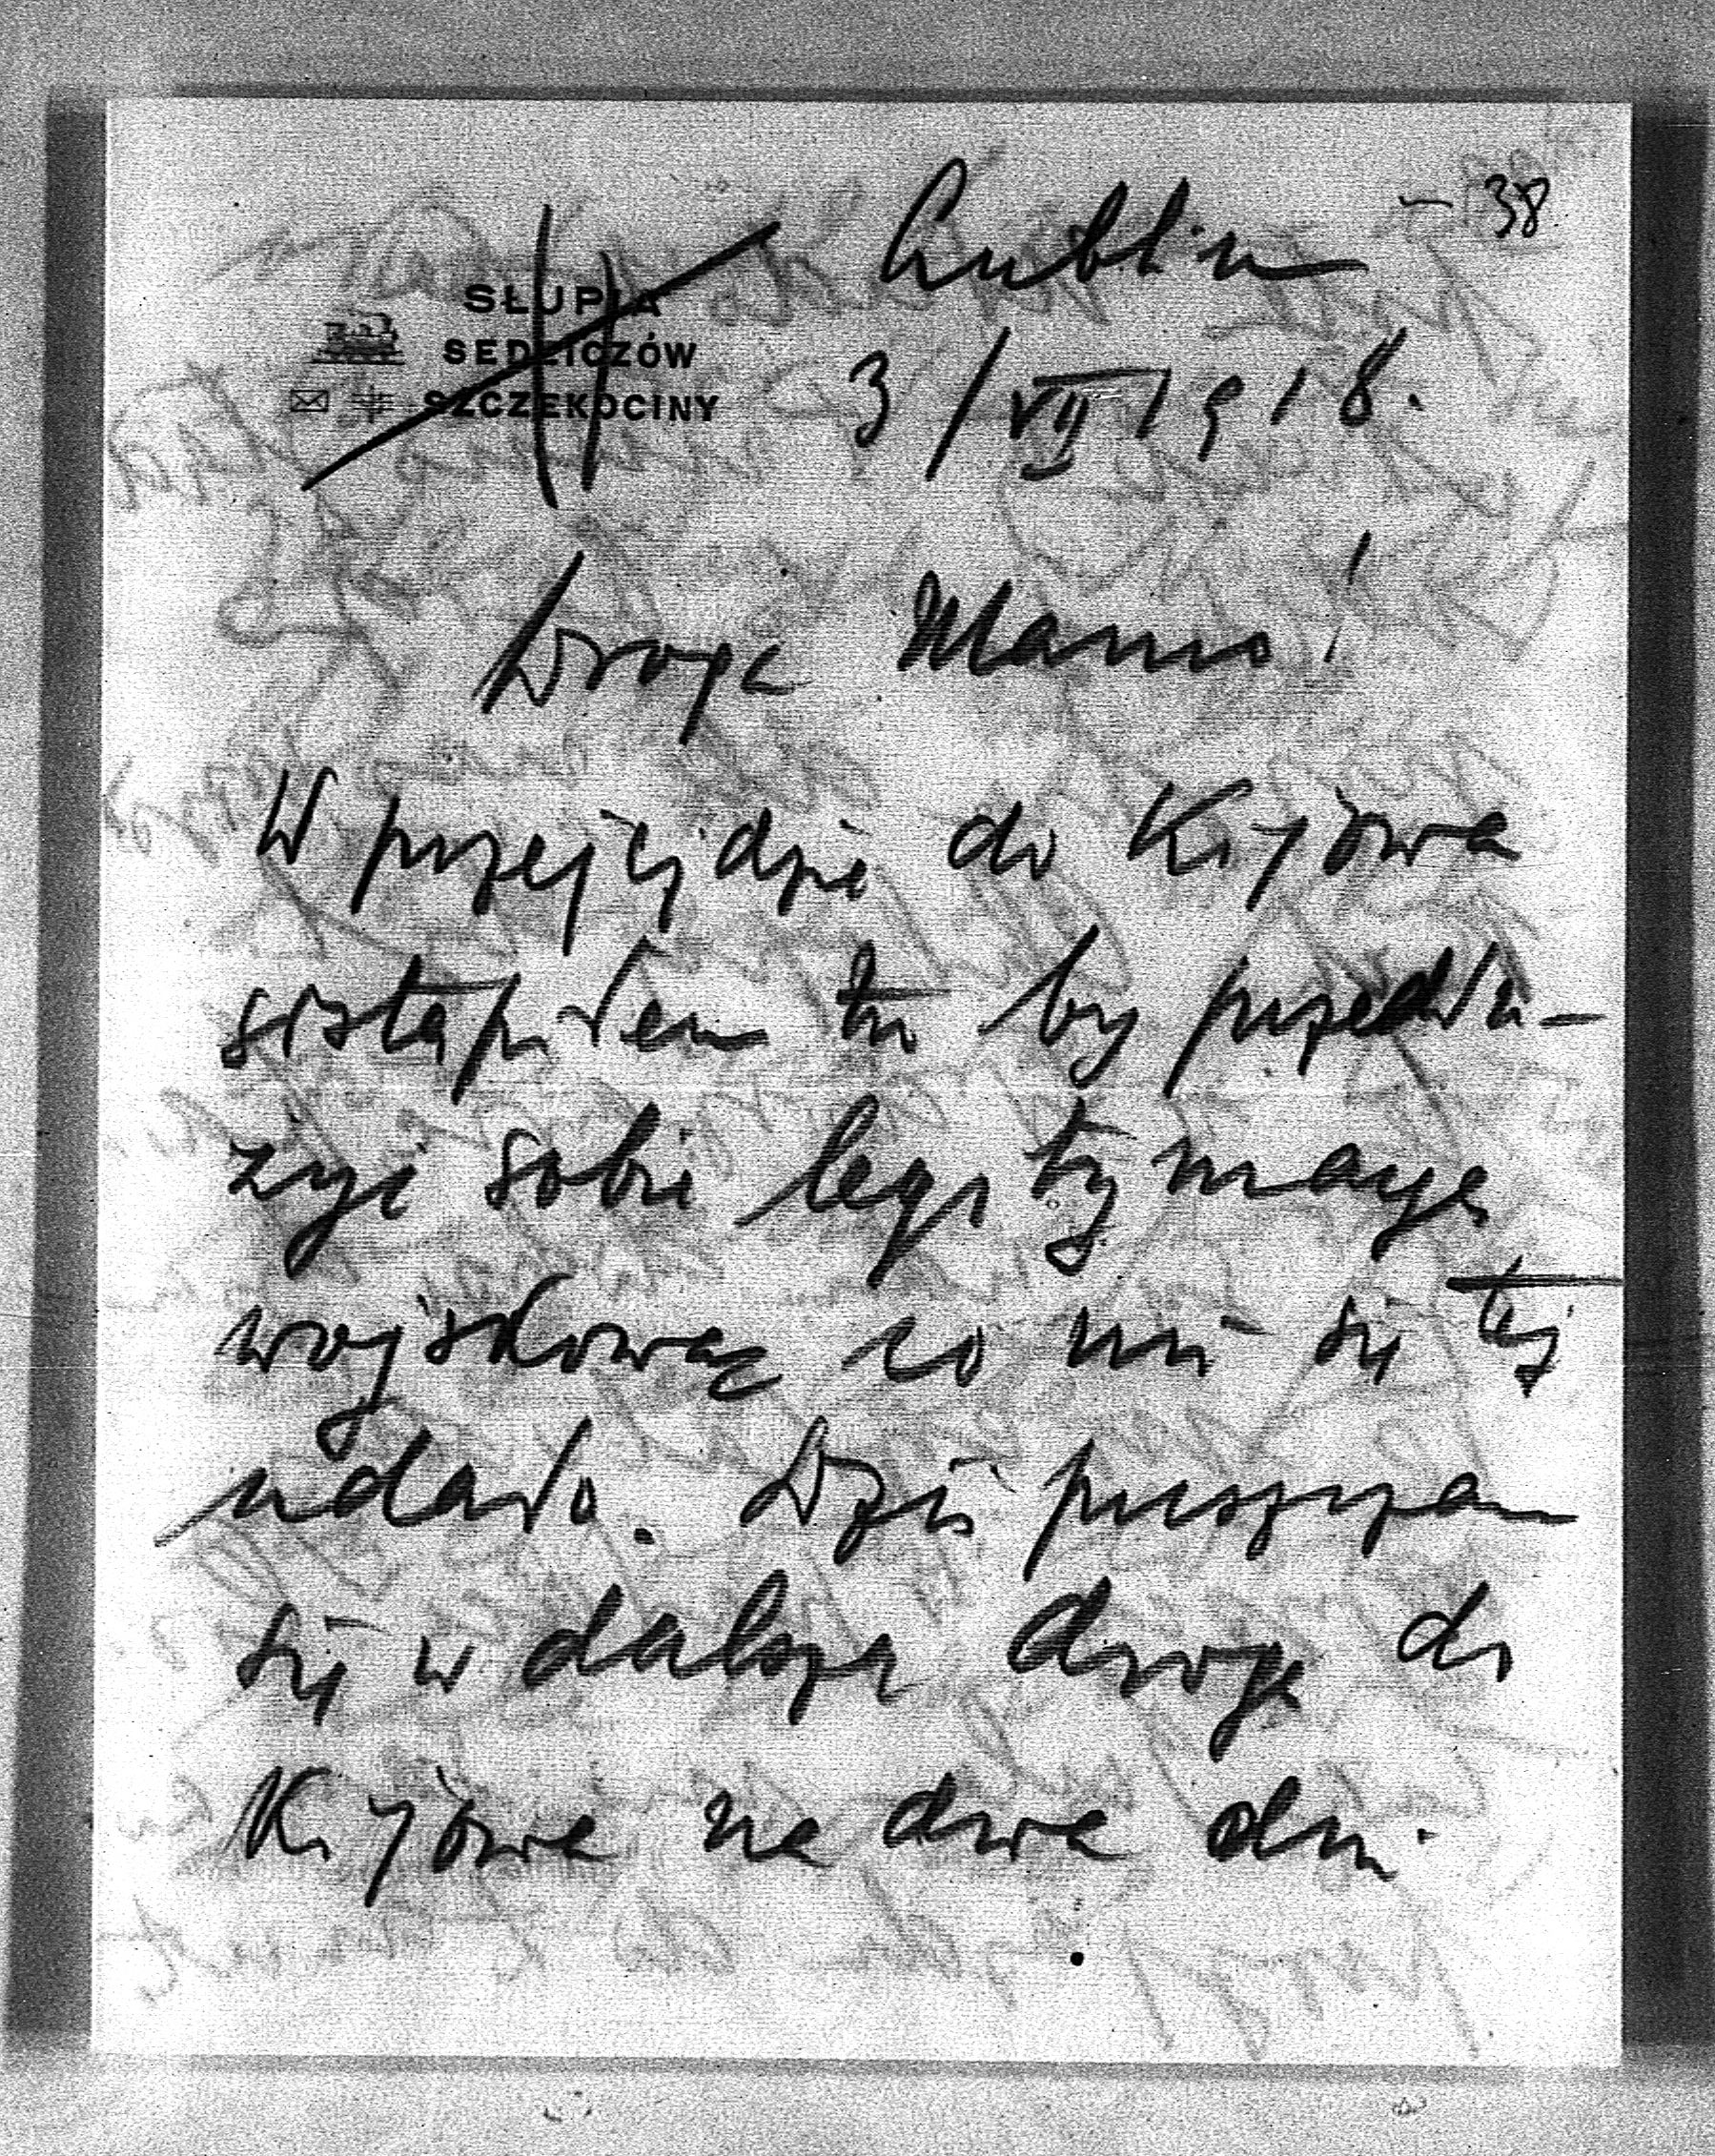 - 38
Lublin
SŁUPIA
SEDZICZÓW
SZCZEKOCINY
3/VII 1918.
Droga Mamo!
W przejeździe do Kijowa
wstąpiłem tu by przedłu-
żyć sobie legitymacye
wojskową co mi się też
udało. Dziś puszczam
się w dalszą drogę do
Kijowa na dwa dni.